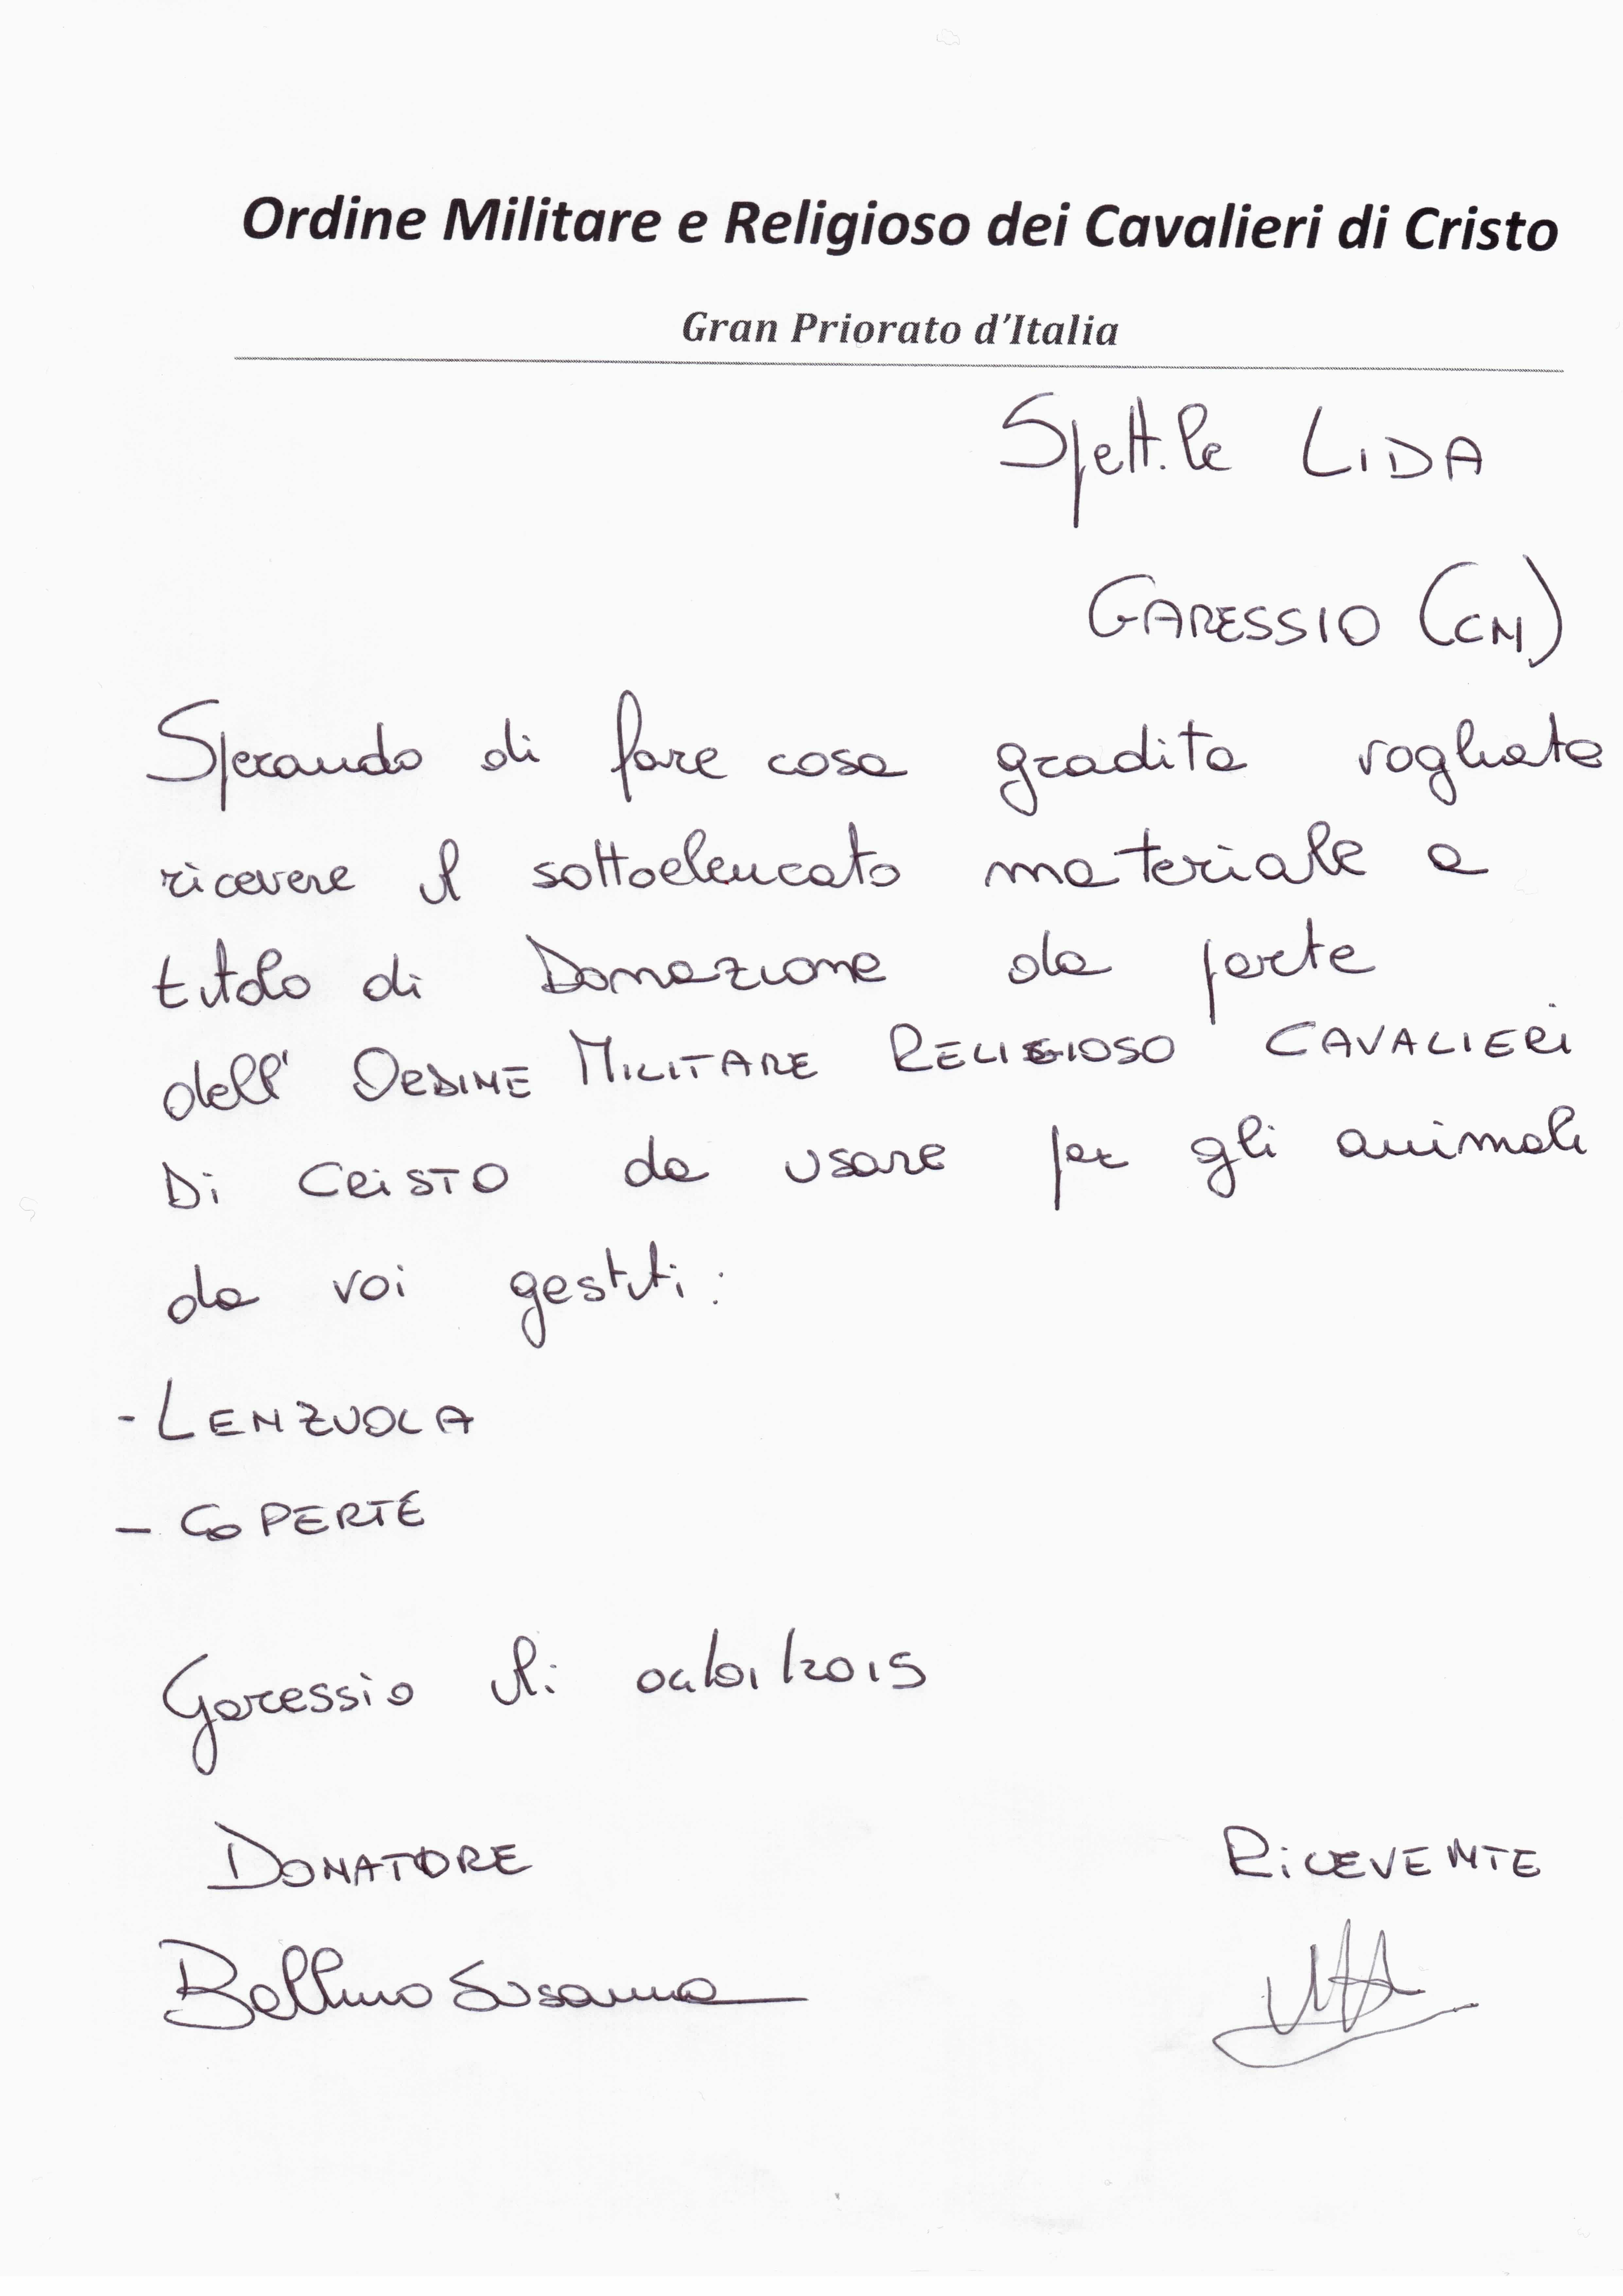 Ordine Militare e Religioso dei Cavalieri di Cristo
Gran Priorato d'Italia
Spett.le LIDA
GARESSIO (CN)
Sperando di fare cosa gradita vogliate
ricevere il sottoelencato materiale a
titolo di Donazione da parte
dell' ORDINE MILITARE RELIGIOSO CAVALIERI
Di CRISTO da usare per gli animali
da voi gestiti:
- LENZUOLA
- COPERTE
Garessio li: 04/01/2015
DONATORE RICEVENTE
Bellino Susanna